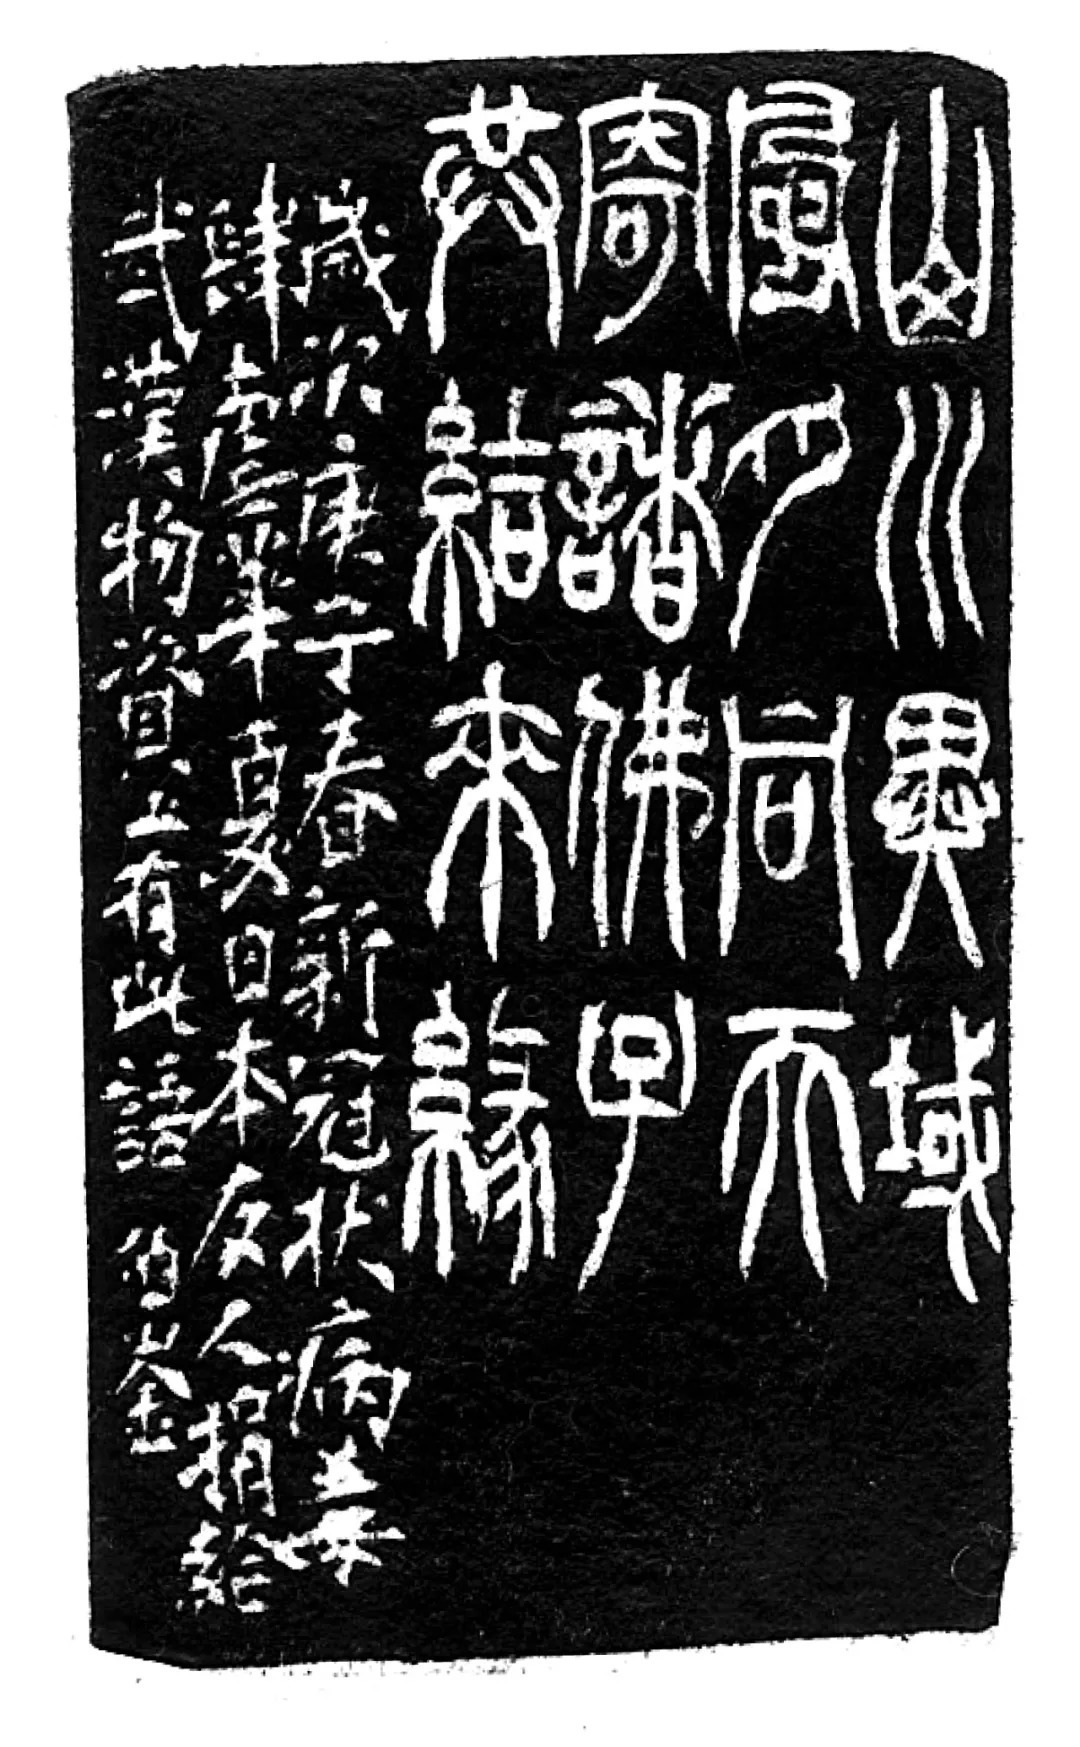 山川異域
風月同天
寄諸佛子
共結來緣
歲次庚子春新冠狀病毒
肆虐華夏日本友人捐給
武漢物資上有此語 伯崟